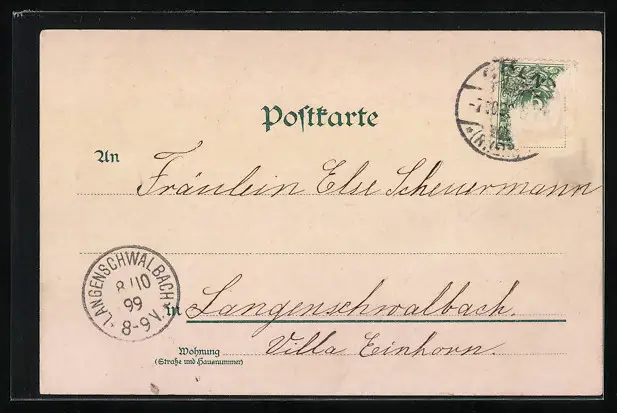 Postkarte
An Fräulein Else Scheuermann
in Langenschwalbach.
Villa Einhorn.
Wohnung
(Straße und Hausnummer)
LANGENSCHWALBACH
8/10
99
8-9 V.